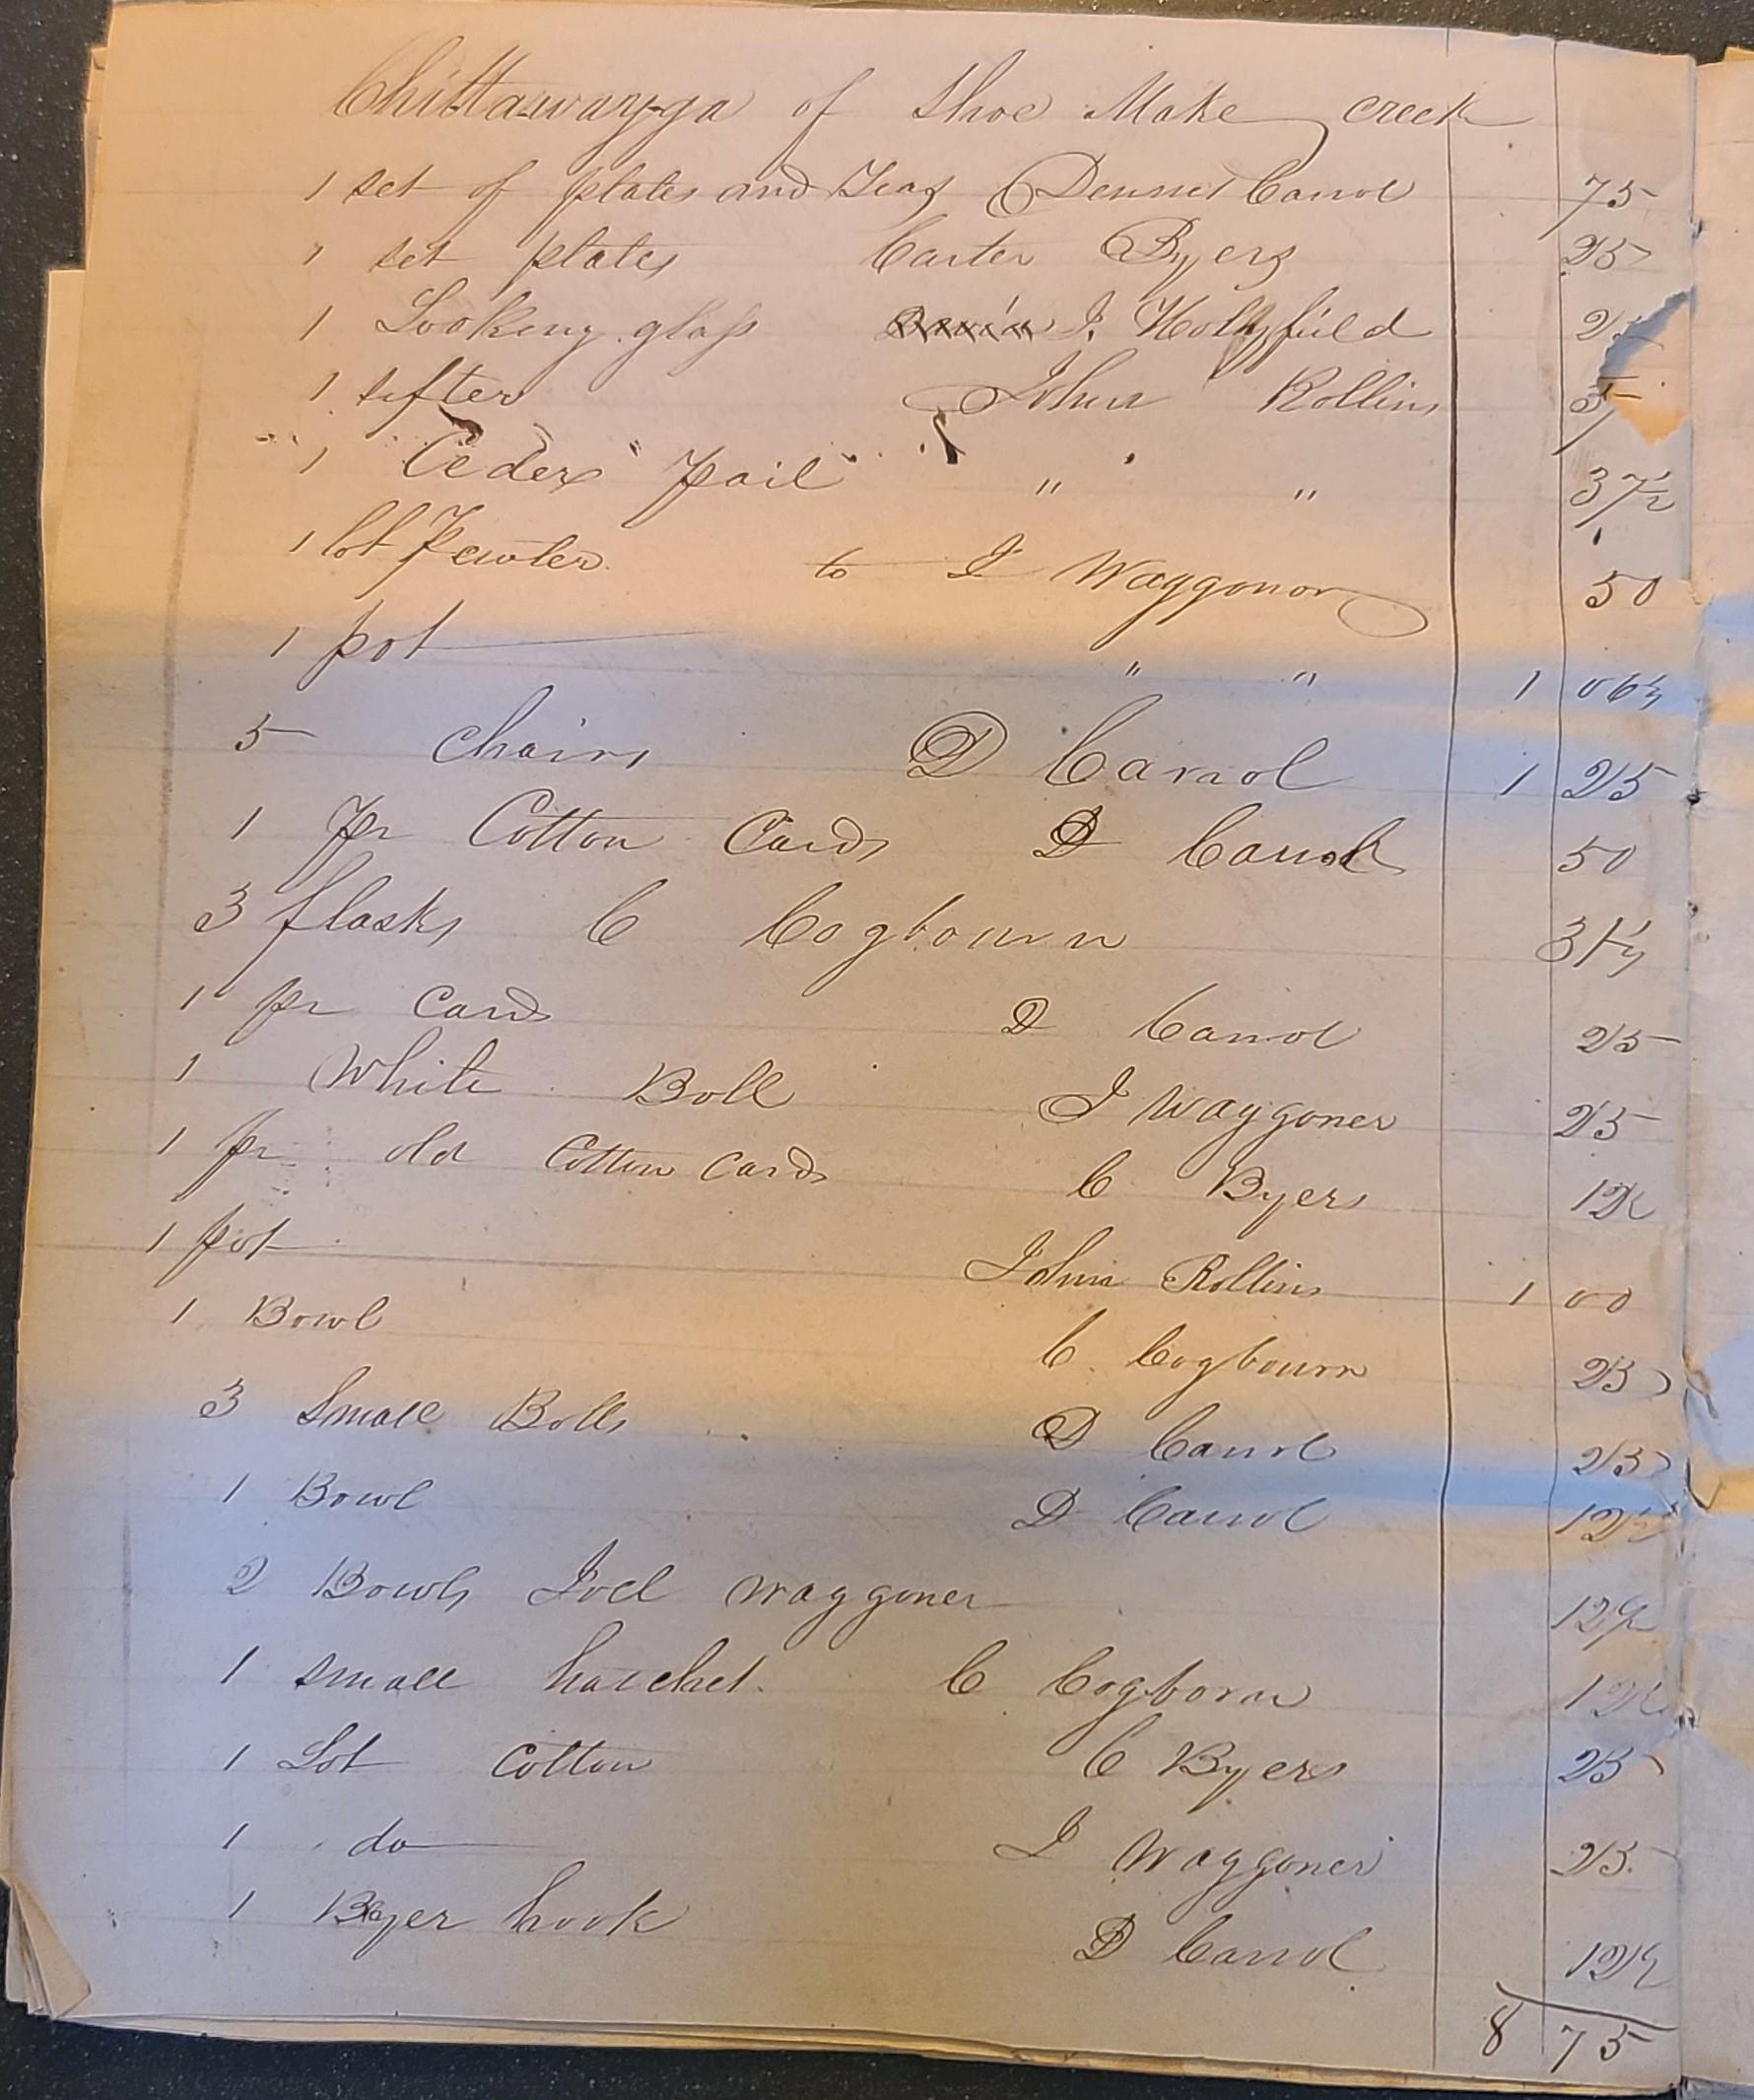 Chittawayga of Shoe Make creek
1 set of plates and Teas Dennis Carrol 75
1 set plates Carter Byers 25
1 Looking glass J. Hollyfield 2
1 sifter John Rollins 5
1 Ceder Pail " " 37½
1 lot Pewter to J Waggonor 50
1 pot " " 1 06¼
5 Chairs D Carrol 1 25
1 Pr Cotton Cards D Carrol 50
3 flasks C Cogbourn 31¼
1 pr Cards D Carrol 25
1 White Boll J Waggoner 25
1 pr old Cotton Cards C Byers 12½
1 pot John Rollins 1 00
1 Bowl C. Cogbourn 25
3 Small Bolls D Carrol 25
1 Bowl D Carrol 12½
2 Bowls Joel Waggoner 12½
1 small hatchet. C Cogborn 12½
1 Lot Cotton C Byers 25
1 do J Waggoner 25
1 hook D Carrol 12½
8 75